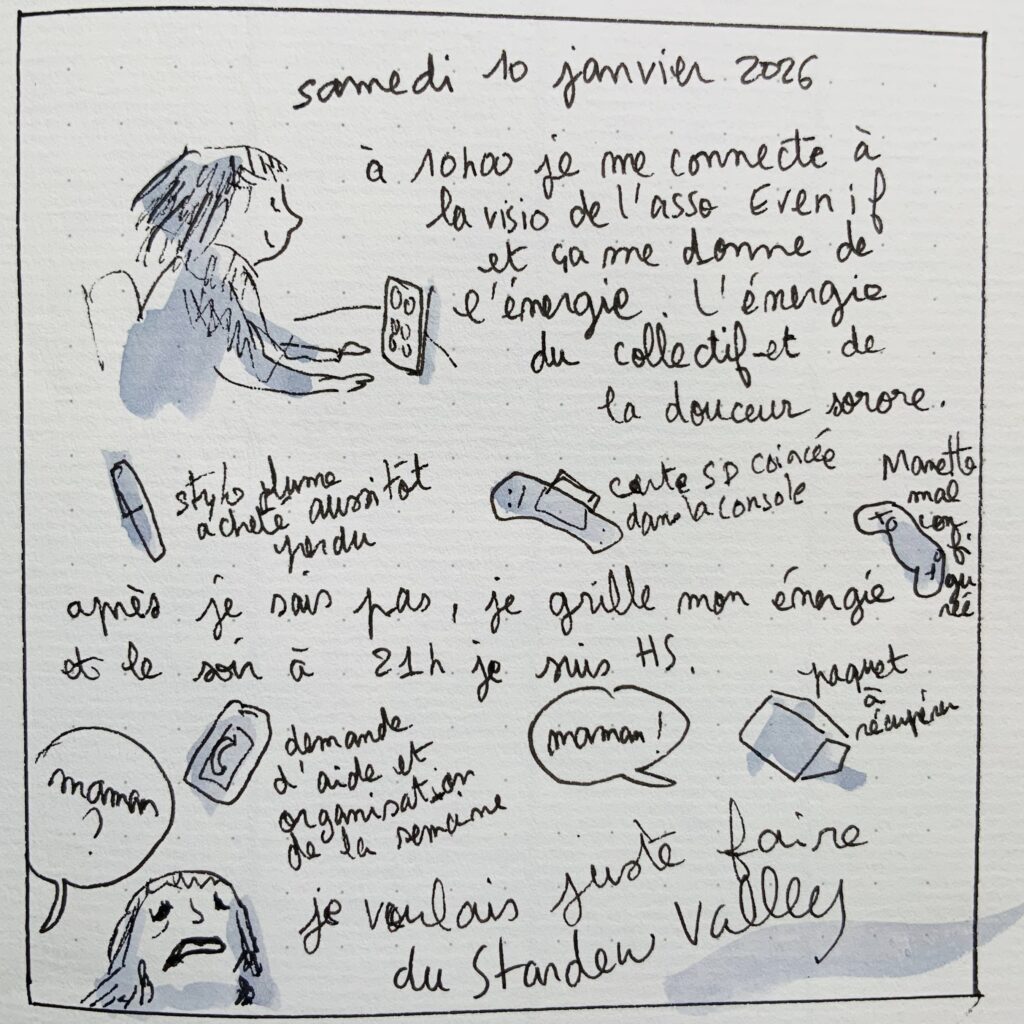 samedi 10 janvier 2026
à 10h00 je me connecte à
la visio de l'asso Even if
et ça me donne de
l'énergie. L'énergie
du collectif et de
la douceur sorore.
stylo plume
acheté aussitôt
perdu
carte SD coincée
dans la console
Manette
mal
con
fi
gu
rée
après je sais pas, je grille mon énergie
et le soir à 21h je suis HS.
maman
?
demande
d'aide et
organisation
de la semaine
maman !
paquet
à
récupérer
je voulais juste faire
du Stardew Valley